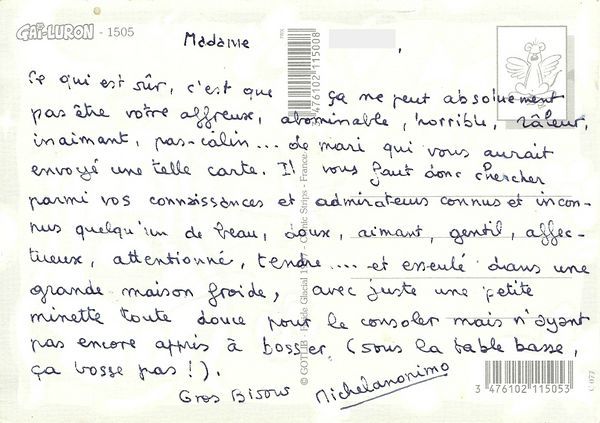 GAI-LURON - 1505
Madame ,
Ce qui est sûr, c'est que ça ne peut absolument
pas être votre affreux, abominable, horrible, râleur,
inaimant, pas-calin... de mari qui vous aurait
envoyé une telle carte. Il vous faut donc chercher
parmi vos connaissances et admirateurs connus et incon-
nus quelqu'un de beau, doux, aimant, gentil, affec-
tueux, attentionné, tendre.... et esseulé dans une
grande maison froide, avec juste une petite
minette toute douce pour le consoler mais n'ayant
pas encore appris à bosser (sous la table basse,
ça bosse pas !).
Gros Bisous Michelanonimo
476102 115008
© GOTLIB - Fluide Glacial - Comic Strips - France
3 476102 115053
C 077